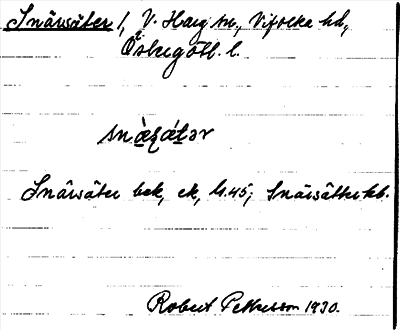 Snärsäter /, V. Harg sn., Vifolka hd,
Östergötl. l.
snä̀ʂä́tər
Snärsäter bek, ek, ls. 45; Snärsätter kb.
Robert Pettersson 1930.